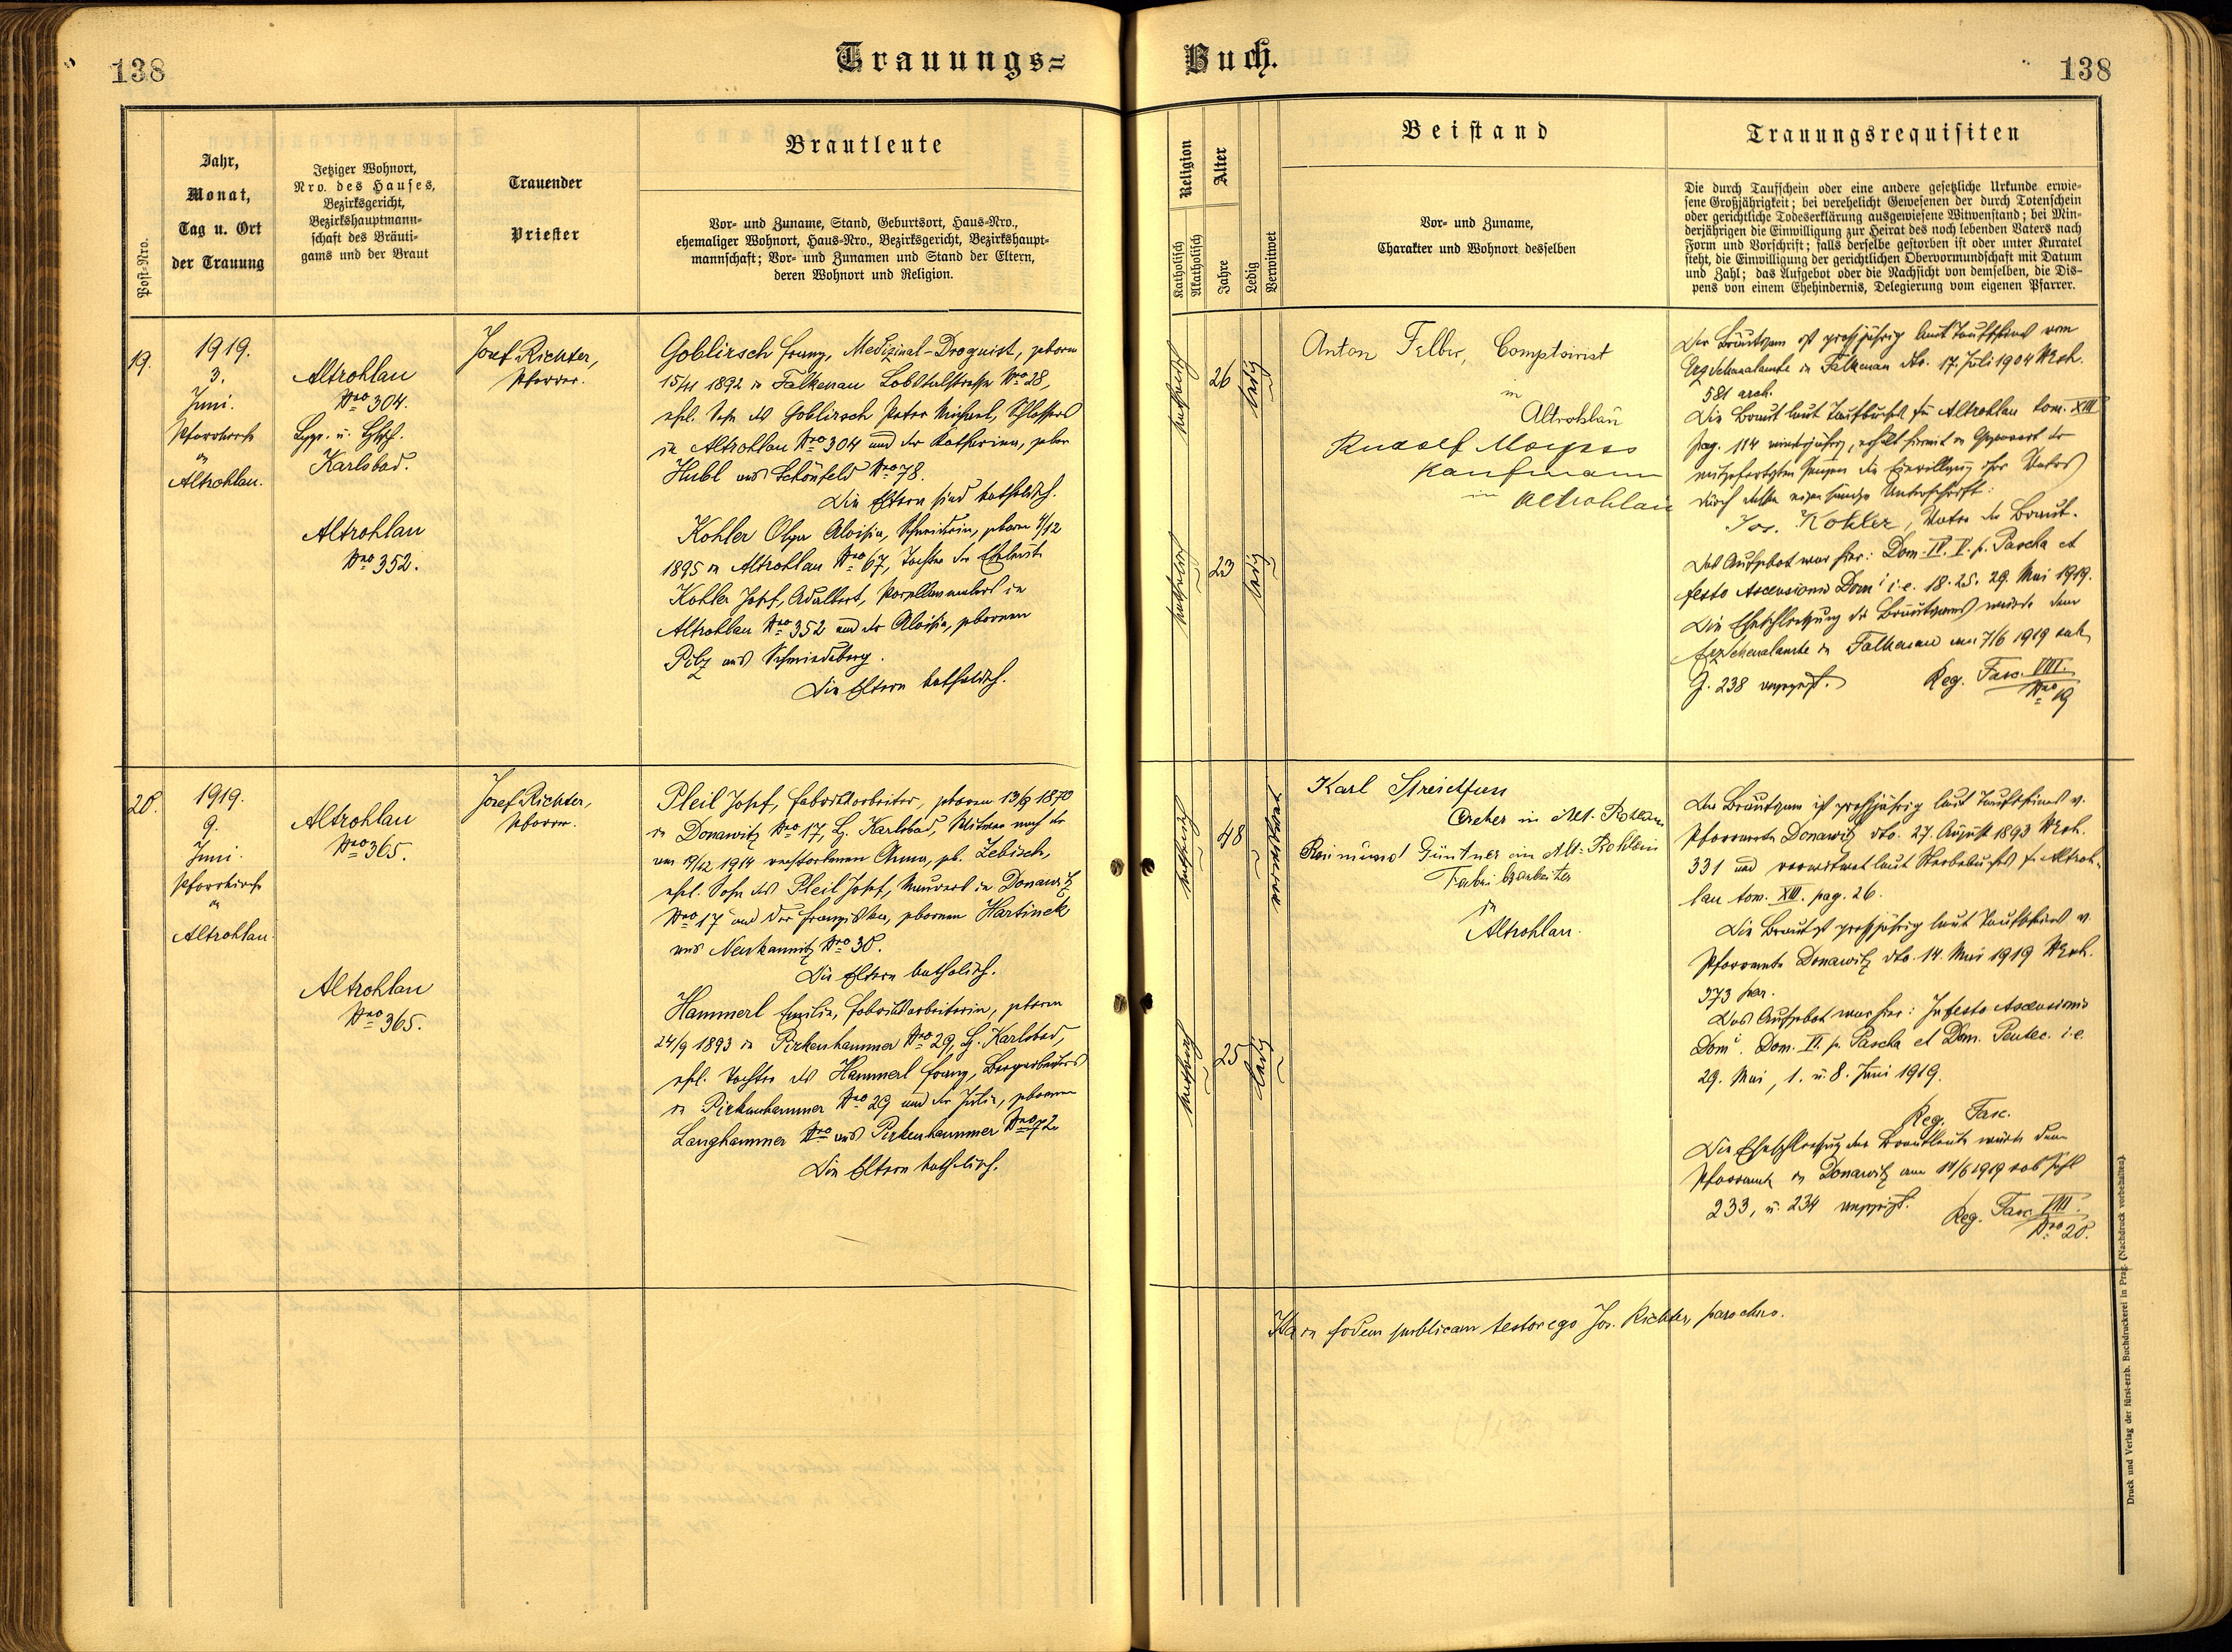 138
Trauungs=
Buch.
138
Post-Nro.
Jahr,
Monat,
Tag u. Ort
der Trauung
Jetziger Wohnort,
Nro. des Hauses,
Bezirksgericht,
Bezirkshauptmann-
schaft des Bräuti-
gams und der Braut
Trauender
Priester
Brautleute
Vor- und Zuname, Stand, Geburtsort, Haus-Nro.,
ehemaliger Wohnort, Haus-Nro., Bezirksgericht, Bezirkshaupt-
mannschaft; Vor- und Zunamen und Stand der Eltern,
deren Wohnort und Religion.
Religion
Katholisch
Akatholisch
Alter
Jahre
Ledig
Verwitwet
Beistand
Vor- und Zuname,
Charakter und Wohnort desselben
Trauungsrequisiten
Die durch Taufschein oder eine andere gesetzliche Urkunde erwie-
sene Großjährigkeit; bei verehelicht Gewesenen der durch Totenschein
oder gerichtliche Todeserklärung ausgewiesene Witwenstand; bei Min-
derjährigen die Einwilligung zur Heirat des noch lebenden Vaters nach
Form und Vorschrift; falls derselbe gestorben ist oder unter Kuratel
steht, die Einwilligung der gerichtlichen Obervormundschaft mit Datum
und Zahl; das Aufgebot oder die Nachsicht von demselben, die Dis-
pens von einem Ehehindernis, Delegierung vom eigenen Pfarrer.
19.
1919.
3.
Juni.
Pfarrkirche
in
Altrohlau.
Altrohlau
Nro 304.
Karlsbad.
Altrohlau
Nro 352.
Josef Richter,
Pfarrer.
Goblirsch Franz, Medizinal-Droguist, geboren
1892 in Falkenau Lobstalstrasse Nro 28,
ehel. Sohn des Goblirsch Peter Michael, Schlossers
in Altrohlau Nro 304 und der Katharina, gebor
Hubl aus Schönfeld Nro 78.
Die Eltern sind katholisch.
Kohler Olga Aloisia, Schneiderin, geboren 4/12
1895 in Altrohlau Nro 67, Tochter der Eheleute
Kohler Josef, Adalbert, Porzellanmalers in
Altrohlau Nro 352 und der Aloisia, geborenen
Pilz aus Schmiedeberg.
Die Eltern katholisch.
katholisch
26
ledig
katholisch
23
ledig
Anton Felber, Comptoirist
in
Altrohlau
Rudolf
Kaufmann
in Altrohlau
Der Bräutigam ist großjährig laut Taufschein vom
Erzdekanalamte in Falkenau dto. 17. Juli 1904 NExh.
581 arch.
Die Braut laut Taufbuches in Altrohlau tom. XIII
pag. 114 minderjährig, erhält hiermit in Gegenwart der
mitgefertigten Zeugen die Einwilligung ihres Vaters
durch dessen eigenhändige Unterschrift:
Jos. Kohler, Vater der Braut.
Das Aufgebot war hier: Dom. IV. V. p. Pascha et
festo Ascensionis Domi i.e. 18. 25. 29. Mai 1919.
Die Eheschließung des Bräutigams wurde dem
Erzdekanalamte in Falkenau am 7/6 1919 sub
Z. 238 angezeigt. Reg. Fasc. VIII.
Nro 19
20.
1919.
9.
Juni.
Pfarrkirche
in
Altrohlau.
Altrohlau
Nro 365.
Altrohlau
Nro 365.
Josef Richter,
Pfarrer.
Pleil Josef, Fabriksarbeiter, geboren 13/9 1870
in Donawitz Nro 17, B. Karlsbad, Witwer nach der
am 19/12 1914 verstorbenen Anna, geb. Lebisch,
ehel. Sohn des Pleil Josef, Maurers in Donawitz
Nro 17 und der Franziska, geborenen Hartinek
aus Neukaunitz Nro 30.
Die Eltern katholisch.
Hammerl Emilie, Fabriksarbeiterin, geboren
24/9 1893 in Pirkenhammer Nro 29, B. Karlsbad,
ehel. Tochter des Hammerl Franz, Bergarbeiters
in Pirkenhammer Nro 29 und der Julie, geborenen
Langhammer Nro aus Pirkenhammer Nro 72.
Die Eltern katholisch.
katholisch
48
verwitwet
katholisch
25
ledig
Karl
Dreher in Alt-Rohlau
Raimund Güntner in Alt-Rohlau
Fabriksarbeiter
in
Altrohlau.
Der Bräutigam ist großjährig laut Taufscheines v.
Pfarramte Donawitz dto. 27. August 1893 NExh.
331 und verwitwet laut Sterbebuches in Altroh-
lau tom. XIII. pag. 26.
Die Braut ist großjährig laut Taufscheines v.
Pfarramte Donawitz dto. 14. Mai 1919 NExh.
373 par.
Das Aufgebot war hier: In festo Ascensionis
Domi. Dom. VI. p. Pascha et Dom. Pentec. i.e.
29. Mai, 1. u. 8. Juni 1919.
Reg. Fasc.
Die Eheschließung der Brautleute wurde dem
Pfarramte in Donawitz am 11/6 1919 sub Zahl
233, u. 234 angezeigt. Reg. Fasc. VIII.
Nro 20.
Ita in fidem publicam testor ego Jos. Richter, parochus.
Druck und Verlag der fürst-erzb. Buchdruckerei in Prag. (Nachdruck vorbehalten).